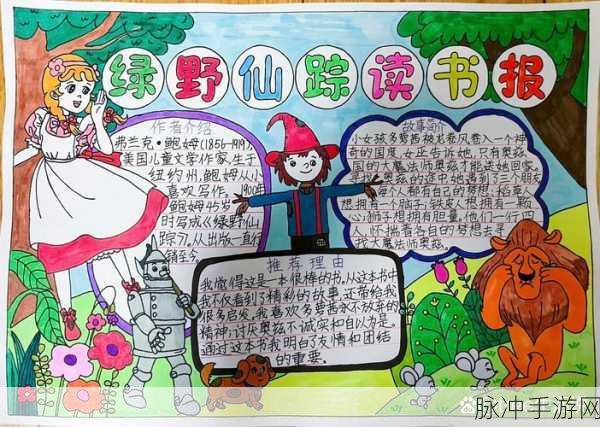 绿野仙踪读书报
作者介绍
弗兰克·鲍姆(1856-1919),
美国儿童文学作家,生于
纽约州,鲍姆从小
喜欢写作。1900年
鲍姆45岁
时写成《绿野仙
踪》,从出版一直行
销至今。
故事简介
小女孩多萝茜被龙卷风卷入一个神
奇的国度,女巫告诉她,只有奥兹
国的大魔法师奥兹才能送她回家。
奥兹的途中她遇到了三个朋友
每个人都有自己的梦想:稻草人
想拥有一个脑子;铁皮人想拥有一颗
心;狮子想拥有胆量,他们一行四
人,怀揣着各自的梦想去寻
找大魔法师奥兹。
推荐理由
我觉得这是一本很棒的书。从这本书中
我不仅看到了精彩的故事,还带给我
很多启发。我喜欢多萝茜永不放弃的
精神;讨厌奥兹不诚实和自以为是。
通过这本书我明白了友情和团结
的重要。
脉冲手游网